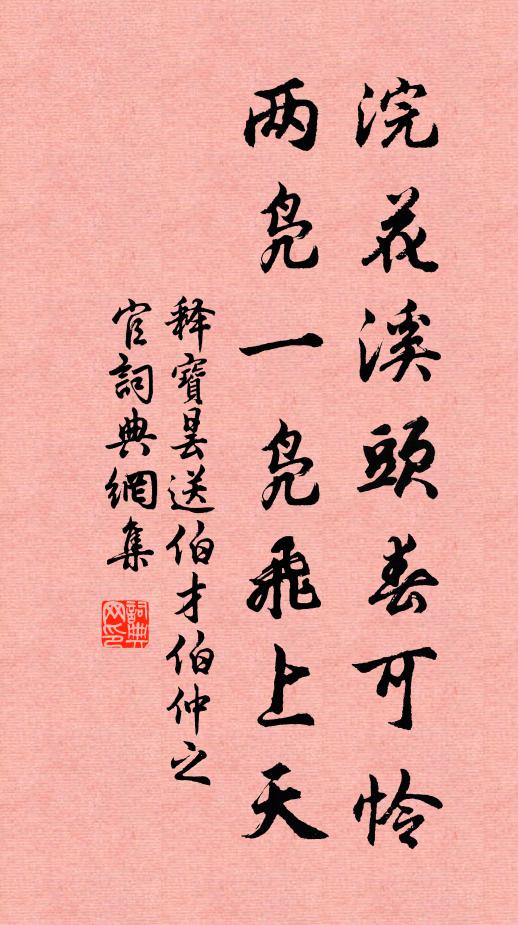 浣花溪頭春可怜
两凫一凫飛上天
释寶曇送伯才伯仲之
官詞典網集
詞典
网印